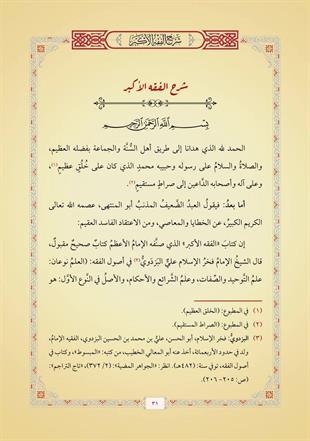 شرح الفقه الأكبر
شرح الفقه الأكبر
بسم الله الرحمن الرحيم
الحمد لله الذي هدانا إلى طريق أهل السُّنَّة والجماعة بفضله العظيم،
والصلاةُ والسلامُ على رسوله وحبيبه محمدٍ الذي كان على خُلُقٍ عظيمٍ(١)،
وعلى آله وأصحابه الدَّاعين إلى صراطٍ مستقيمٍ(٢).
أما بعدُ: فيقولُ العبدُ الضَّعيفُ المذنبُ أبو المنتهى، عصمه الله تعالى
الكريم الكبيرُ، عن الخطايا والمعاصي، ومن الاعتقاد الفاسد العقيم:
إن كتابَ «الفقه الأكبر» الذي صنَّفه الإمامُ الأعظمُ كتابٌ صحيحٌ مقبولٌ،
قال الشيخُ الإمامُ فخرُ الإسلام عليٌّ البَزدَويُّ(٣) في أصول الفقه: (العلمُ نوعان:
علمُ التَّوحيد والصِّفات، وعلمُ الشَّرائع والأحكام، والأصلُ في النَّوع الأوَّل: هو
(١) في المطبوع: (الخلق العظيم).
(٢) في المطبوع: (الصراط المستقيم).
(٣) البزدويُّ: فخر الإسلام، أبو الحسن، علي بن محمد بن الحسين البزدوي، الفقيه الإمامُ،
ولد في حدود الأربعمائة، أخذ عنه أبو المعالي الخطيب، من كتبه: «المبسوط»، وكتاب في
أصول الفقه، توفي سنة: (٤٨٢هـ). انظر: «الجواهر المضية» (٢/ ٣٧٢)، «تاج التراجم»
(ص: ٢٠٥-٢٠٦).
٣١